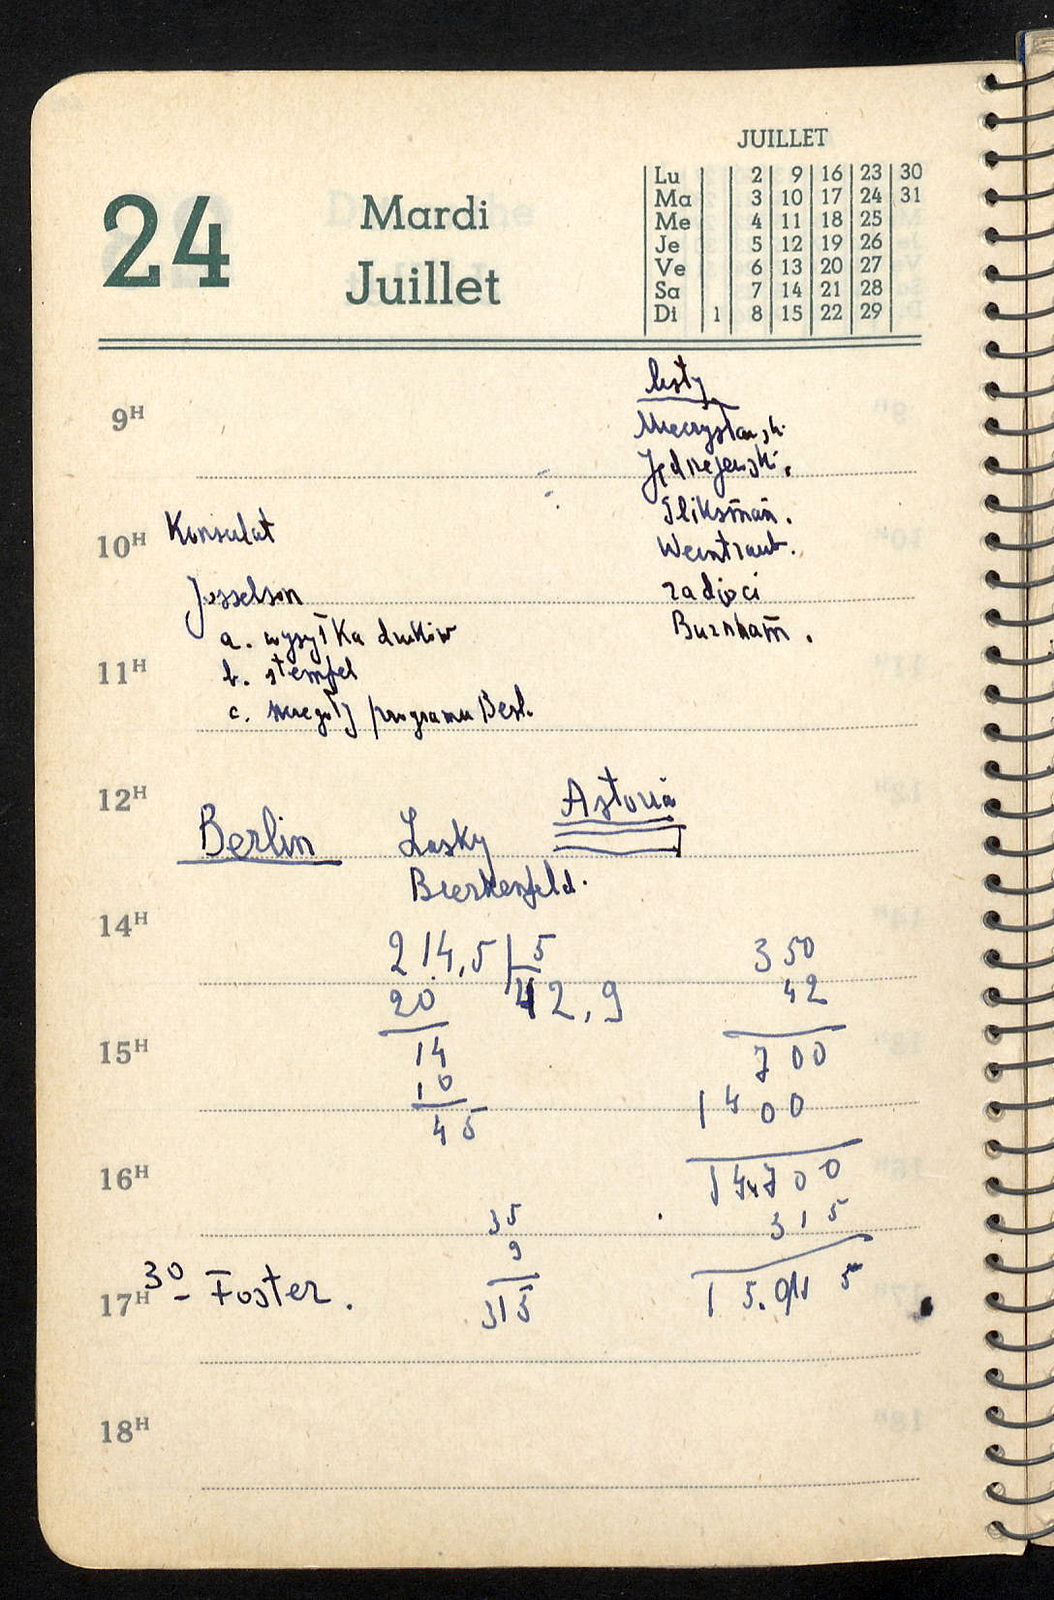 JUILLET
24 Mardi
Juillet
Lu 2 9 16 23 30
Ma 3 10 17 24 31
Me 4 11 18 25
Je 5 12 19 26
Ve 6 13 20 27
Sa 7 14 21 28
Di 1 8 15 22 29
listy
9H
Mieczysławsk.
Jędrzejewski.
Gliksman.
10H Konsulat
Weintraub.
Josselson
zadjęci
a. wysyłka druków
Burnham.
11H
b. stempel
c. szczegóły programu Berl.
12H
Astoria
Berlin Lasky
Bierkenfeld.
14H
214,5 | 5 350
20 42,9 42
15H
14 700
10 1400
45
16H
14700
35 315
9
17H 30 - Foster. 315 15.015
18H